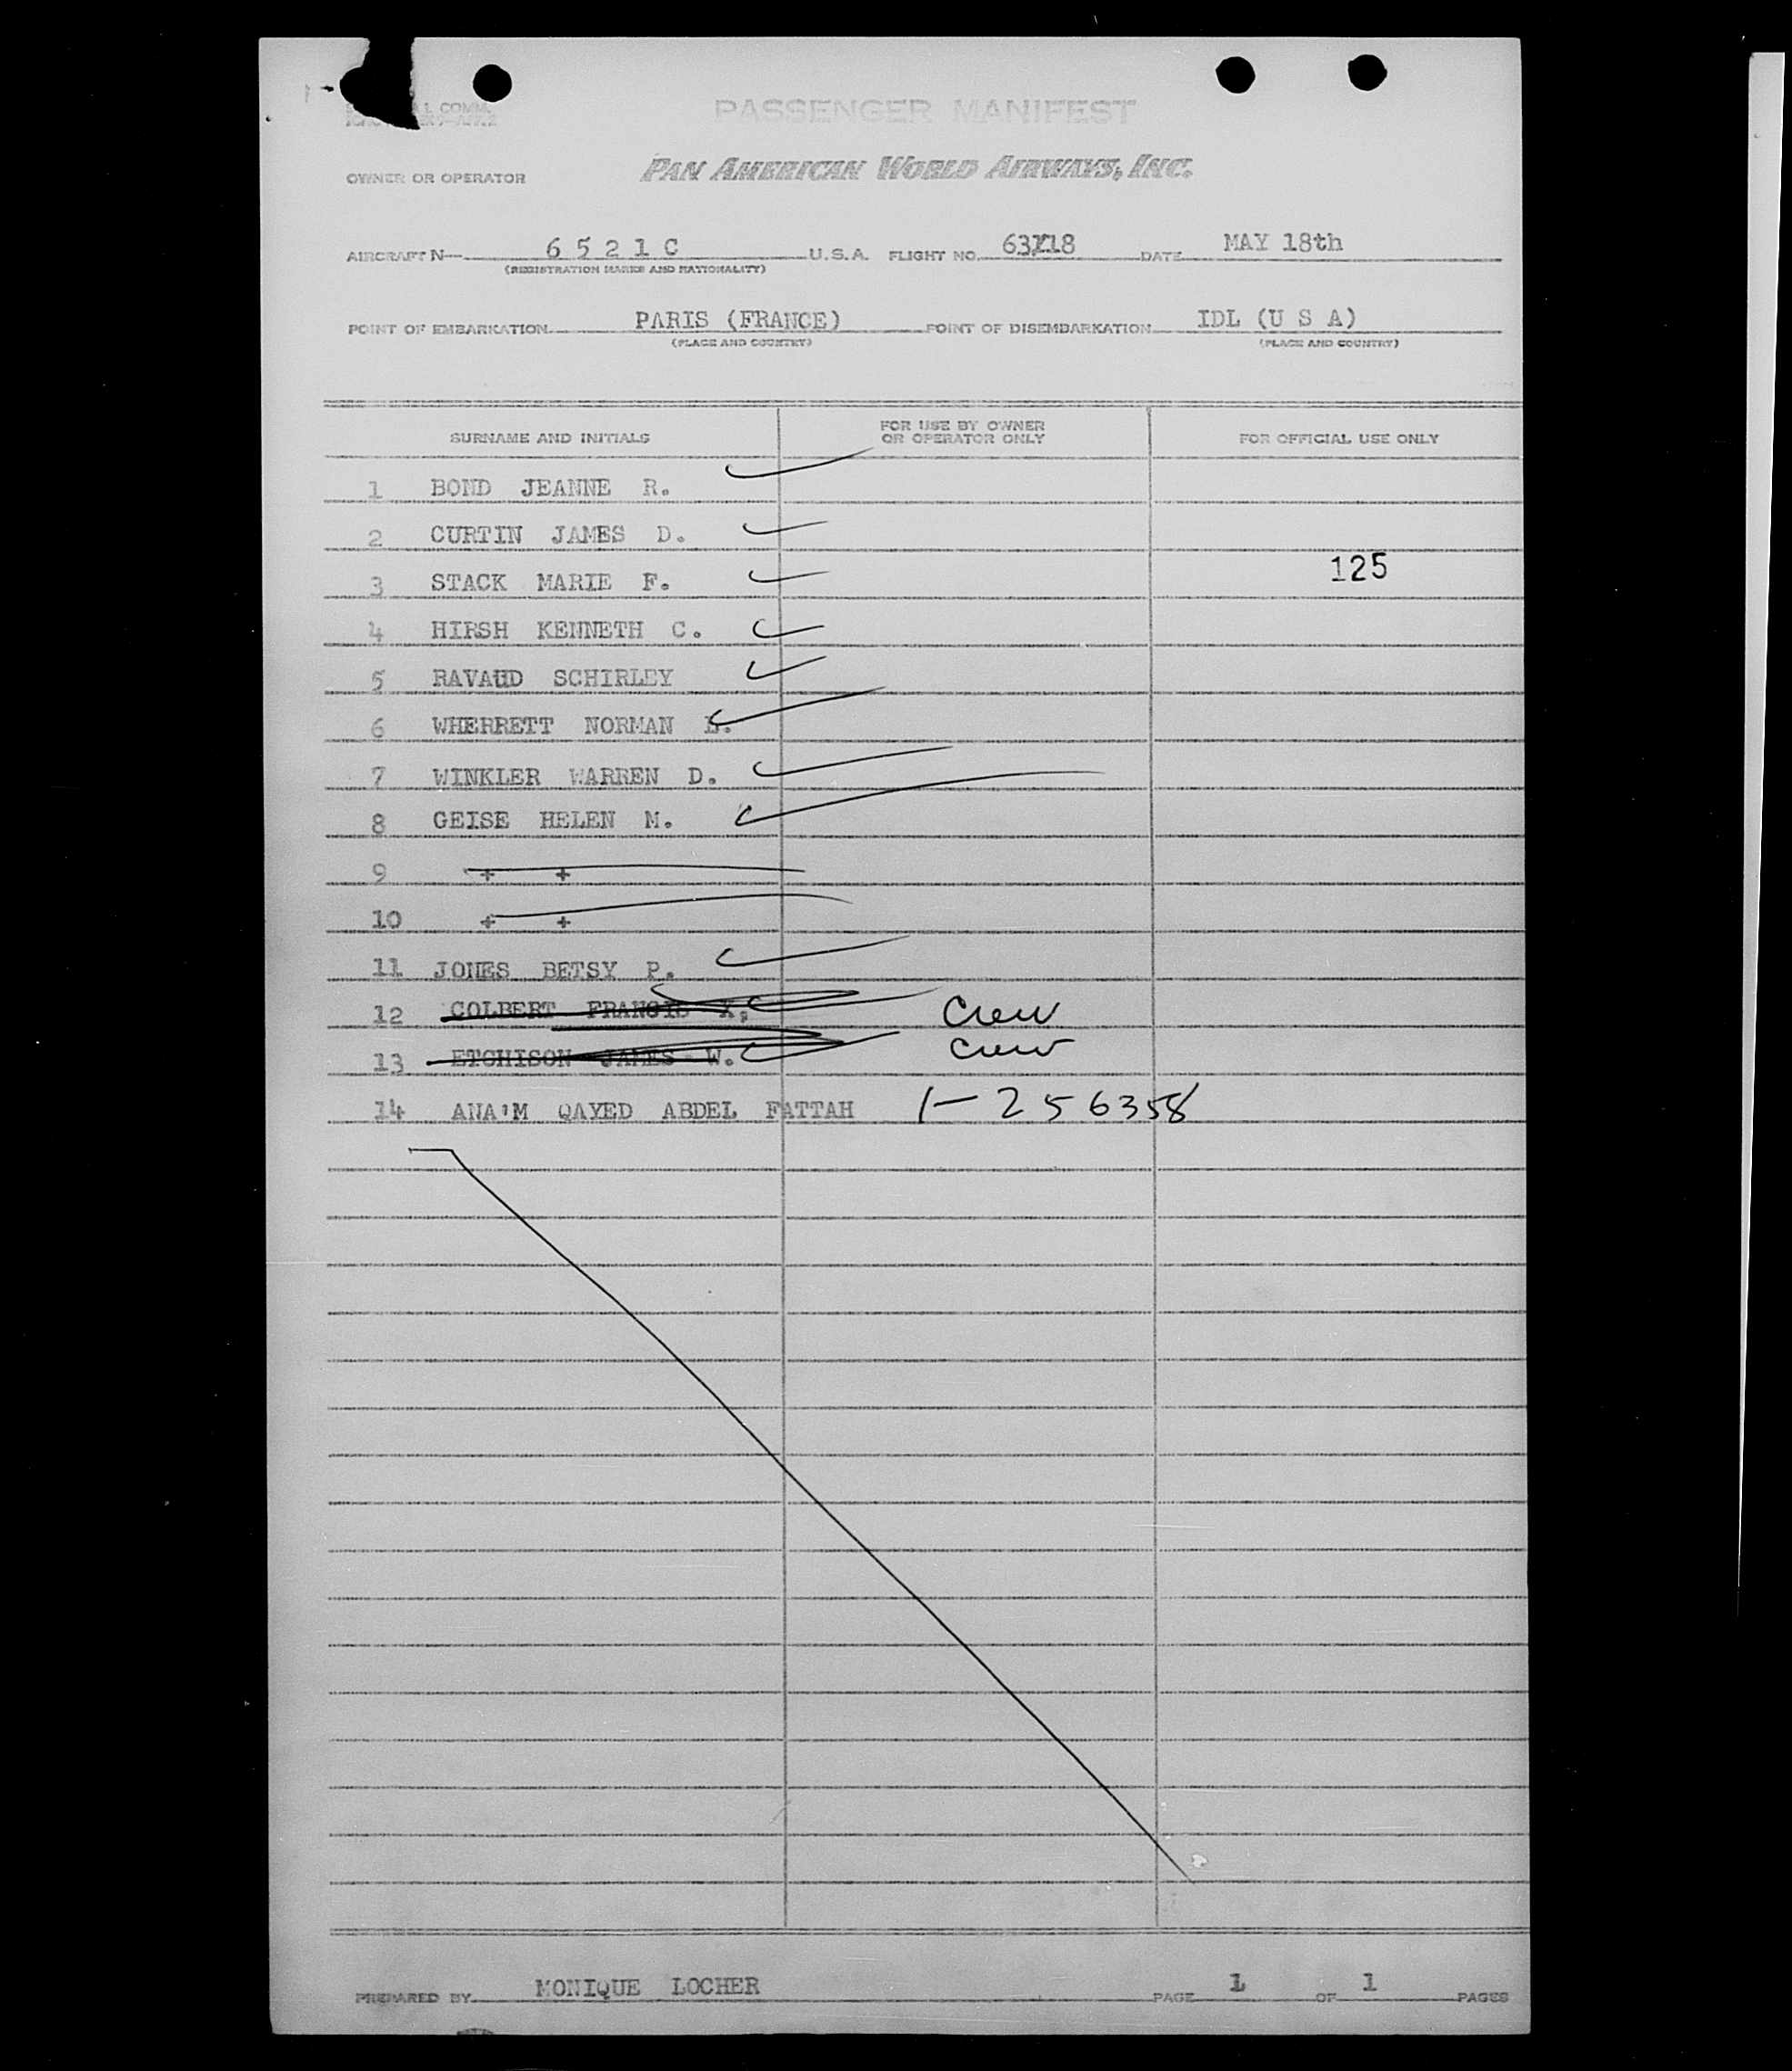 PASSENGER MANIFEST
OWNER OR OPERATOR PAN AMERICAN WORLD AIRWAYS, INC.
AIRCRAFT N— 6 5 2 1 C U.S.A. FLIGHT NO. DATE MAY 18th
(REGISTRATION MARKS AND NATIONALITY)
POINT OF EMBARKATION PARIS (FRANCE) POINT OF DISEMBARKATION IDL (U S A)
(PLACE AND COUNTRY) (PLACE AND COUNTRY)
SURNAME AND INITIALS FOR USE BY OWNER OR OPERATOR ONLY FOR OFFICIAL USE ONLY
1 BOND JEANNE R.
2 CURTIN JAMES D.
125
3 STACK MARIE F.
4 HIRSH KENNETH C.
5 RAVAUD SCHIRLEY
6 WHERRETT NORMAN
7 WINKLER WARREN D.
8 GEISE HELEN M.
9 + +
10 + +
11 JONES BETSY P.
12 COLBERT FRANCIS X. Crew
13 ETCHISON JAMES W. Crew
14 ANA'M QAYED ABDEL FATTAH 1-256358
PREPARED BY MONIQUE LOCHER PAGE 1 OF 1 PAGES